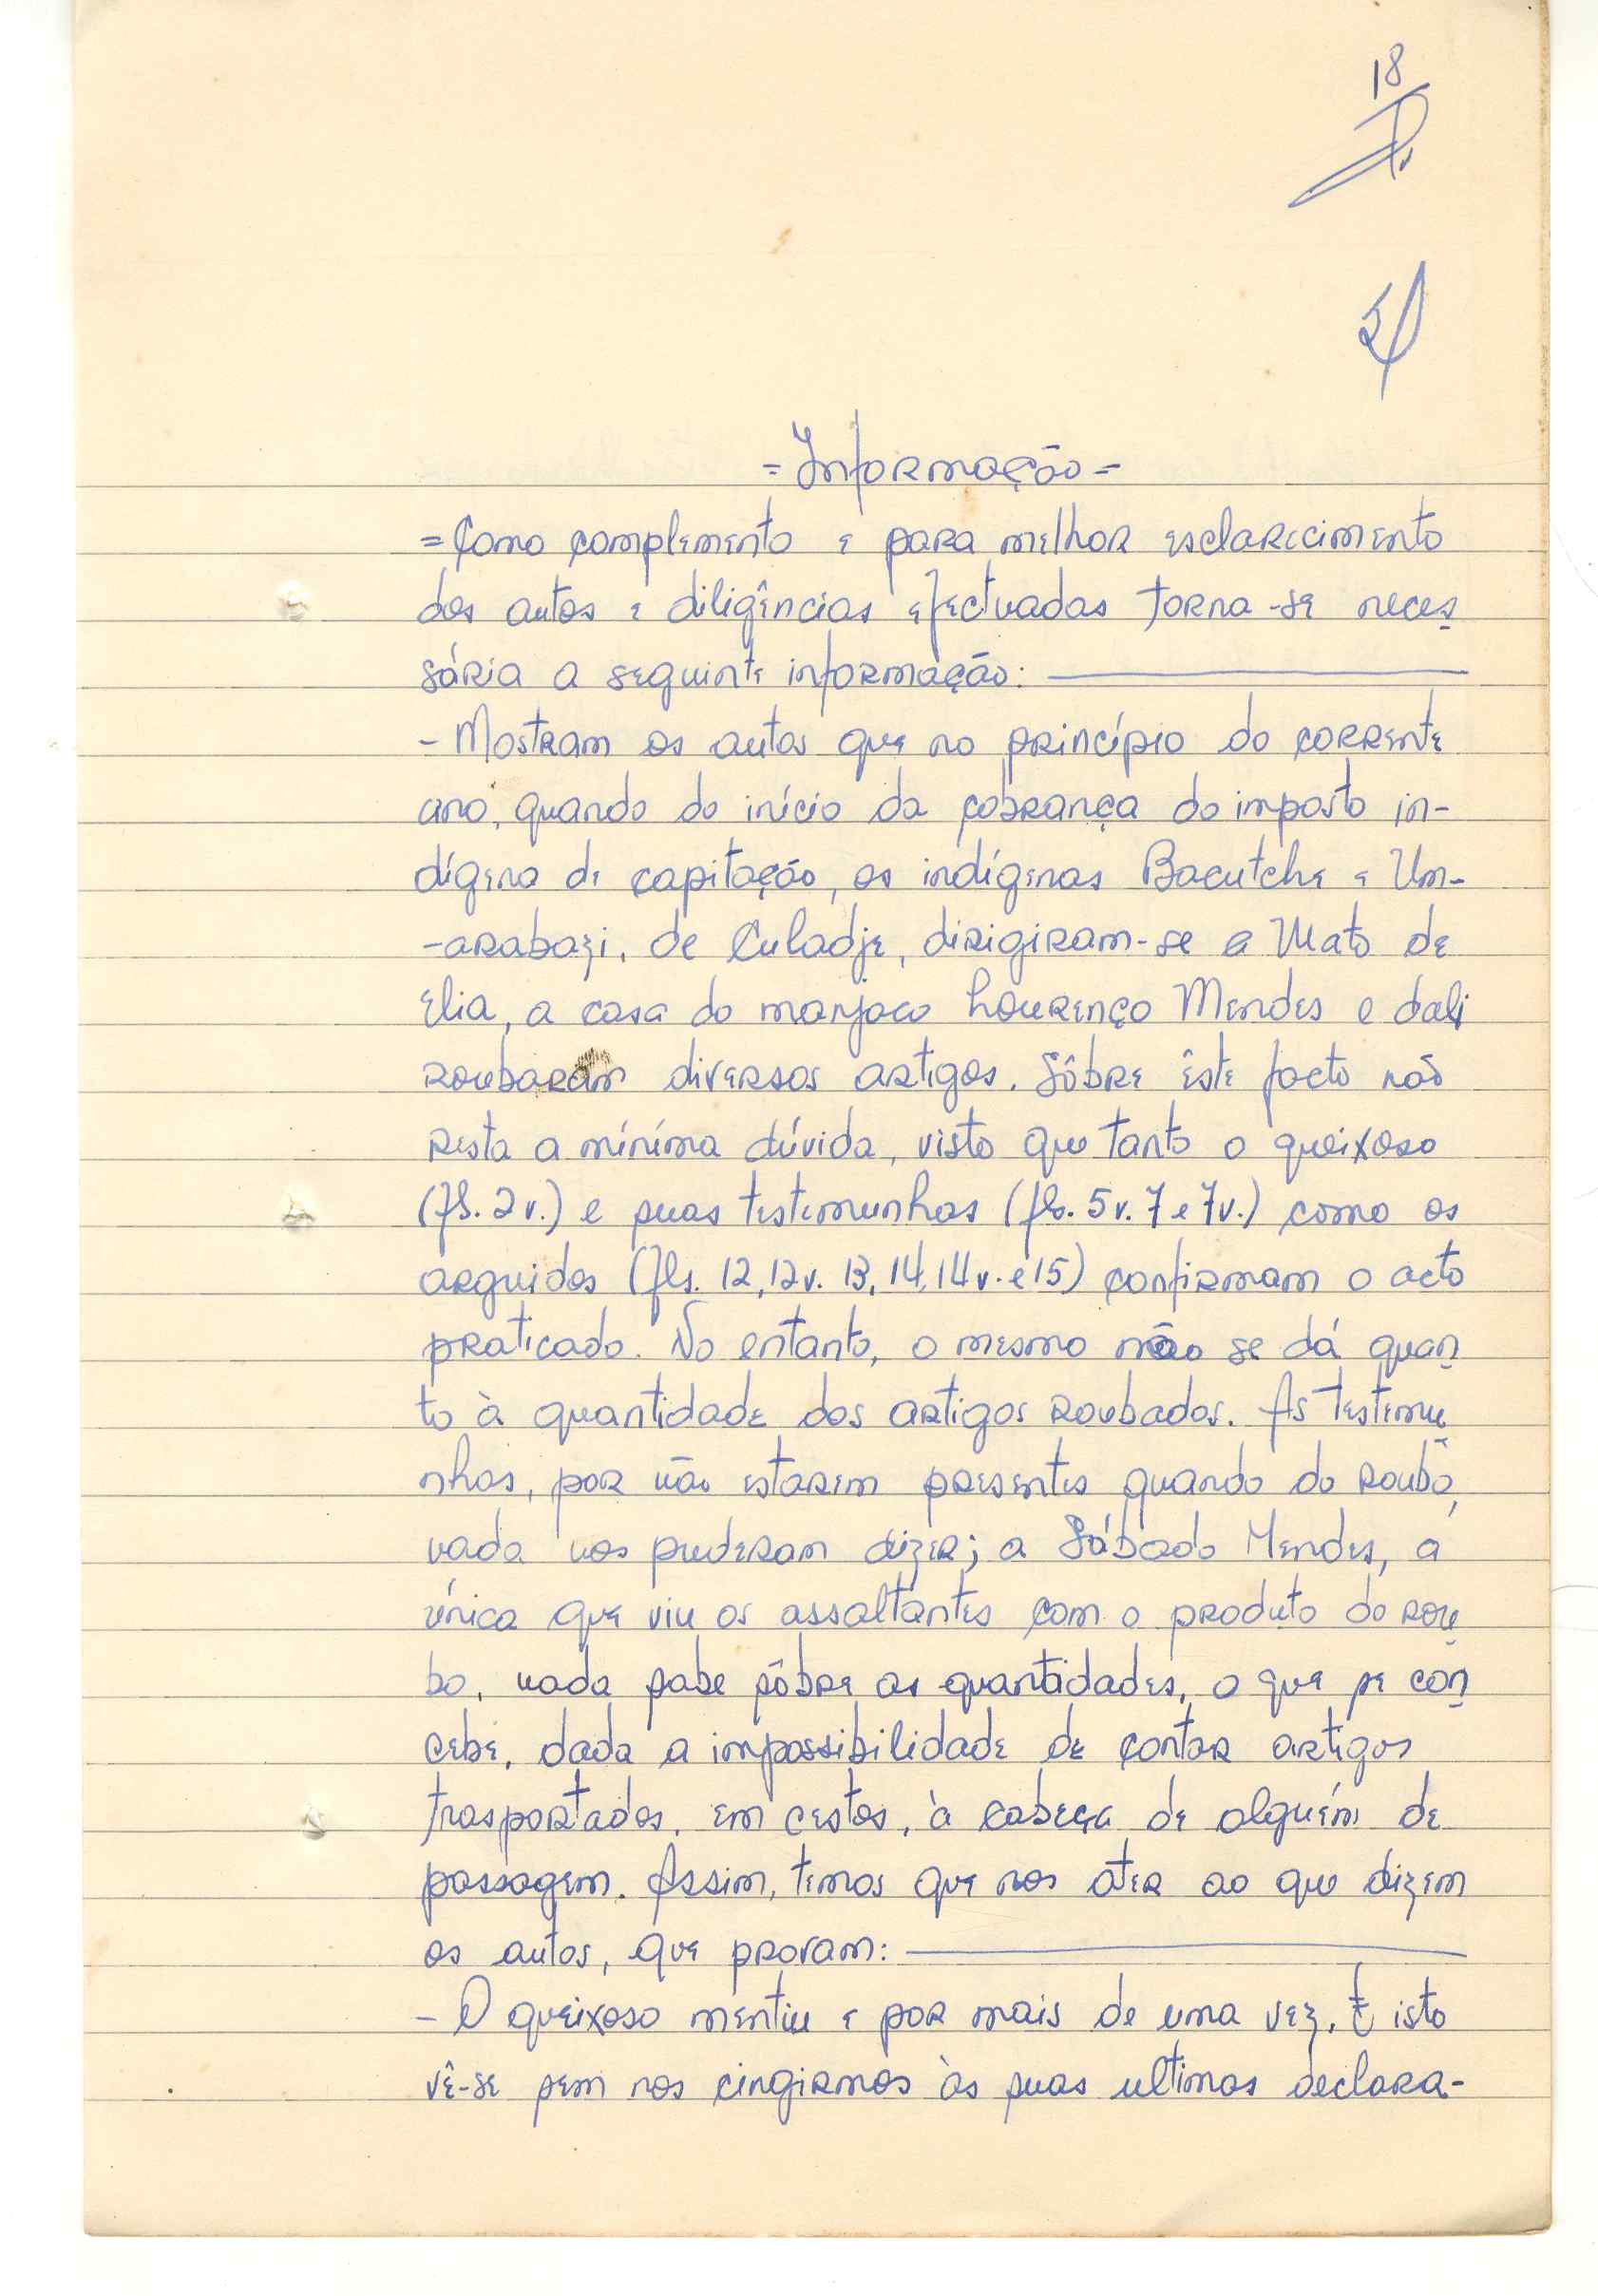 18
= Informação =
= Como complemento e para melhor esclarecimento
dos autos e diligências efectuadas torna-se neces
sária a seguinte informação:
- Mostram os autos que no princípio do corrente
ano, quando do início da cobrança do imposto in-
dígena de capitação, os indígenas Bacutche e Um-
-arabazi, de Culadje, dirigiram-se a Mato de
Elia, a casa do manjaco Lourenço Mendes e dali
roubaram diversos artigos. Sôbre êste facto não
resta a mínima dúvida, visto que tanto o queixoso
(fs. 2 v.) e suas testemunhas (fls. 5 v. 7 e 7v.) como os
arguidos (fls. 12, 12 v. 13, 14, 14 v. e 15) confirmam o acto
praticado. No entanto, o mesmo não se dá quan
to à quantidade dos artigos roubados. As testemu
nhas, por não estarem presentes quando do roubo,
nada nos puderam dizer; a Sábado Mendes, a
única que viu os assaltantes com o produto do rou
bo, nada sabe sôbre as quantidades, o que se con
cebe, dada a impossibilidade de contar artigos
trasportados, em cestos, à cabeça de alguém de
passagem. Assim, temos que nos ater ao que dizem
os autos, que provam:
- O queixoso mentiu e por mais de uma vez. E isto
vê-se sem nos cingirmos às suas ultimas declara-